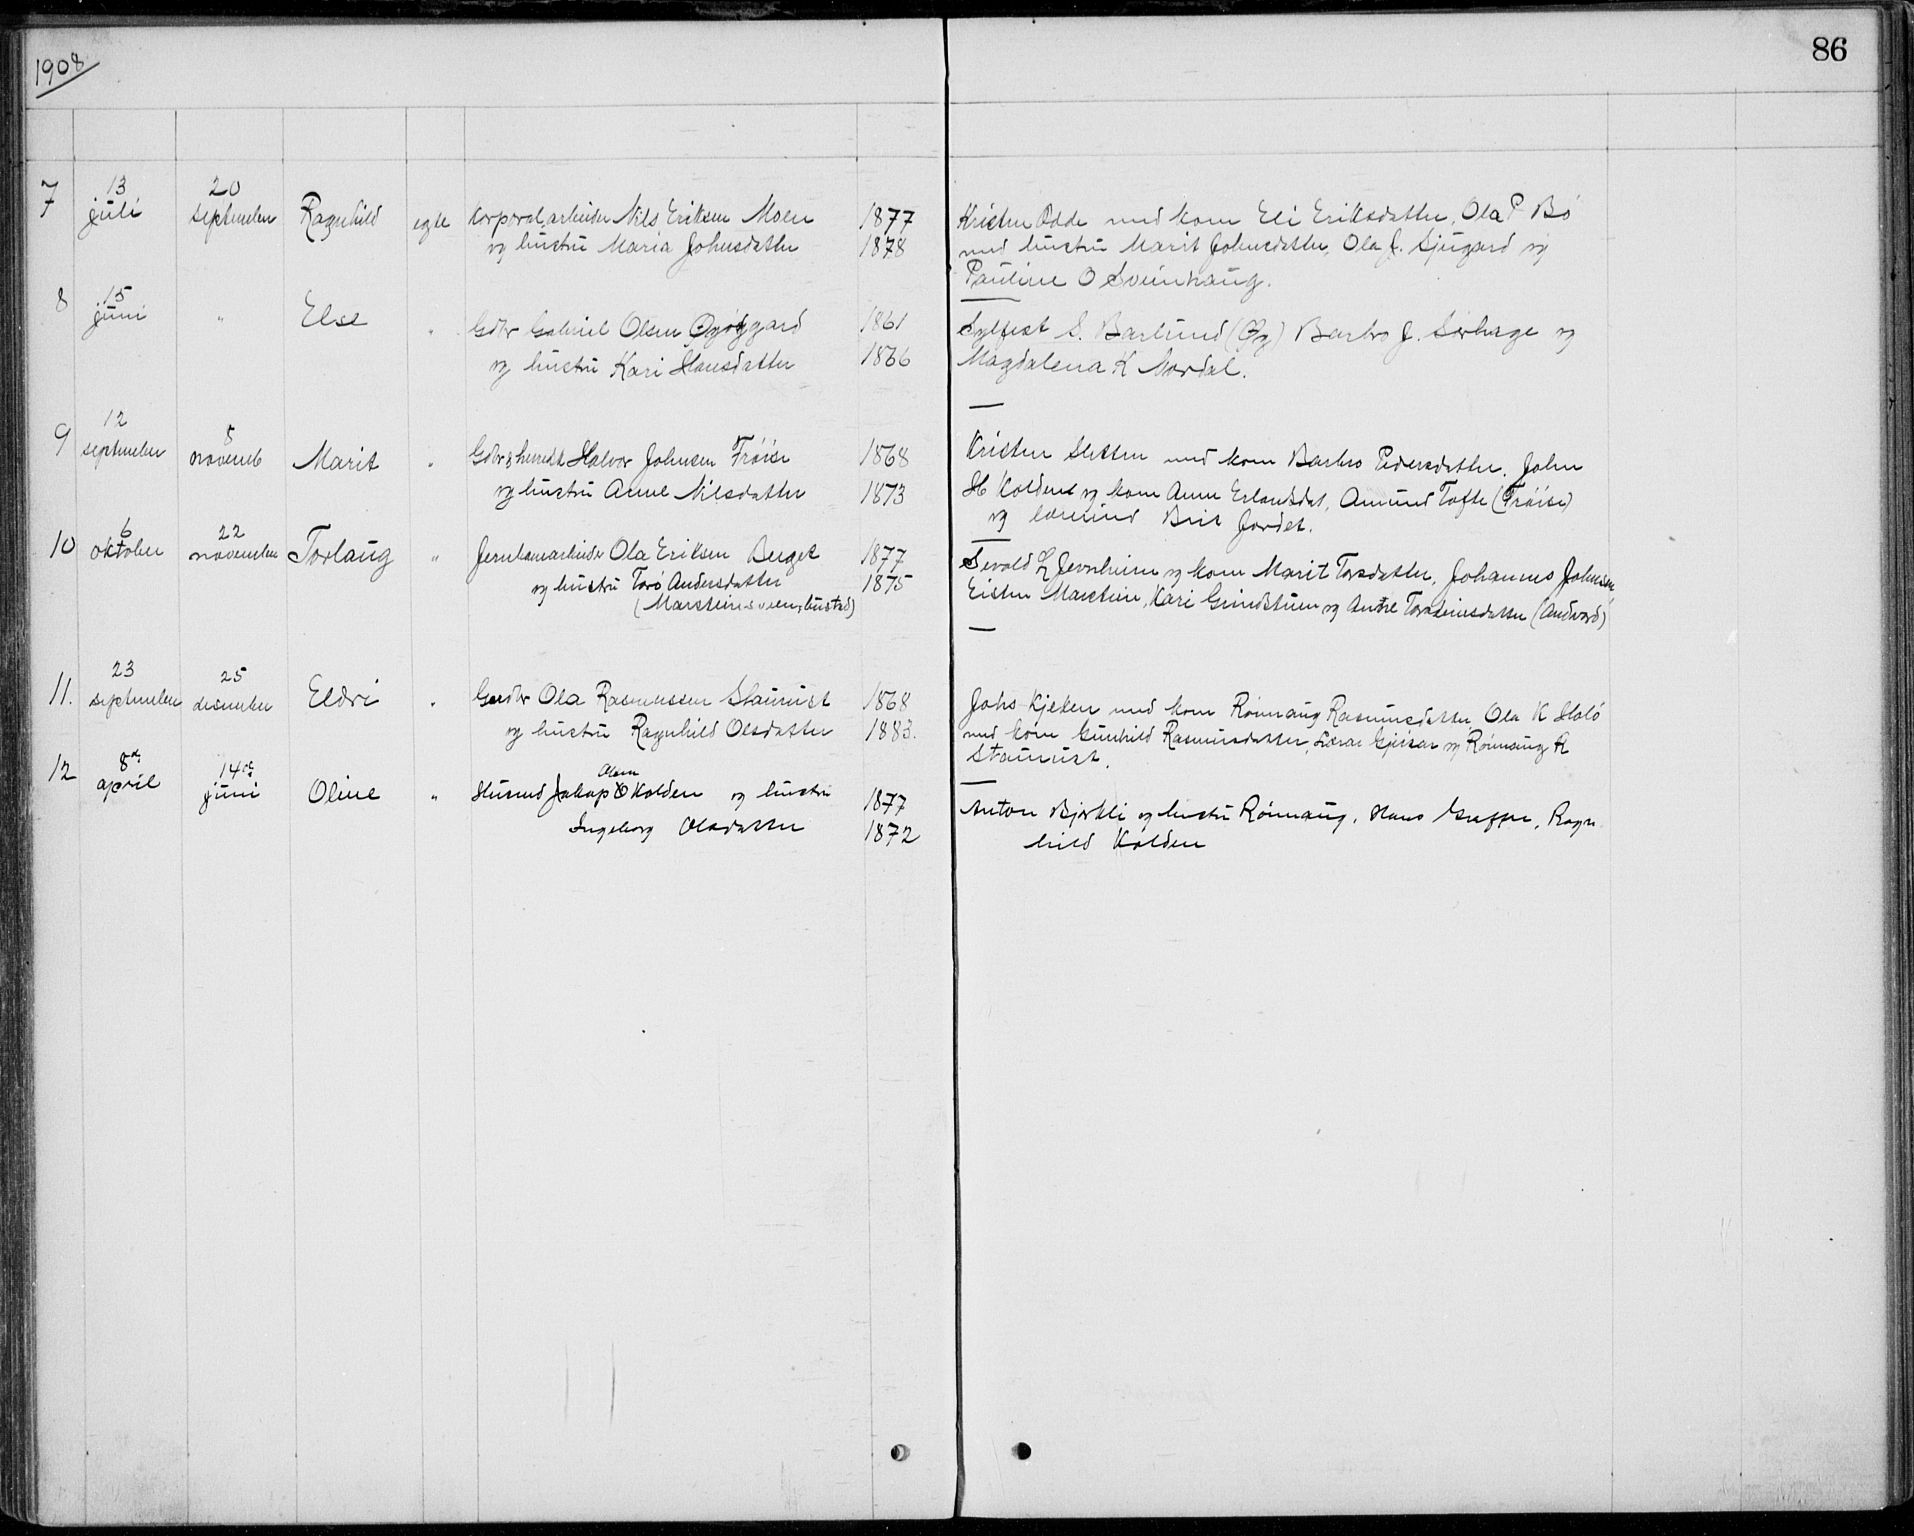 1908
86
7 13 juli 20 september Ragnhild egte Korporal, arbeider Nils Eriksen Moen 1877 Kristen Odde med kone Eli Eriksdatter, Ola P Bö
og hustru Maria Johnsdatter 1878 med hustru Marit Johnsdatter, Ola J. Sjugard og
Pauline O Sveinhaug.
8 15 juni " Else " Gdbr Gabriel Olsen 1861 Sylfest S. Barlund (Öy) Barbro J. og
og hustru Kari Hansdatter 1866 Magdalena K Nordal.
9 12 september 8 novemb Marit " Gdbr & Halvor Johnsen Tröise 1868 Kristen Sletten med kone Barbro Pedersdatter, John
og hustru Anne Nilsdatter 1873 H Kolden og kone Anne Erlandsdat, Amund Tofte (Tröise)
og lærerind Brit Jordet.
10 6 oktober 22 november Torlaug " Jernbanearbeider Ola Eriksen Berget 1877 Sevald L Jevnheim og kone Marit Torsdatter, Johannes Johnsen
og hustru Torö Andersdatter 1875 Eisten Marstein, Kari Grindstuen og Torsteinsdatter (Andvord)
(Marsteinsveen, bustad)
11. 23 september 25 desember Eldri " Gardbr Ola Rasmussen Staurust 1868 Johs Kjeken med kone Rönnaug Rasmusdatter, Ola K Holö
og hustru Ragnhild Olsdatter 1883. med kone Gunhild Rasmusdatter, og Rönnaug R
Staurust.
12 8de april 14de juni Oline " Husmd Jakop Olsen Kolden og hustru 1877 Anton Bjørkli og hustru Rønnaug, Hans Graffer, Ragn
Ingeborg Olsdatter 1872 hild Kolden